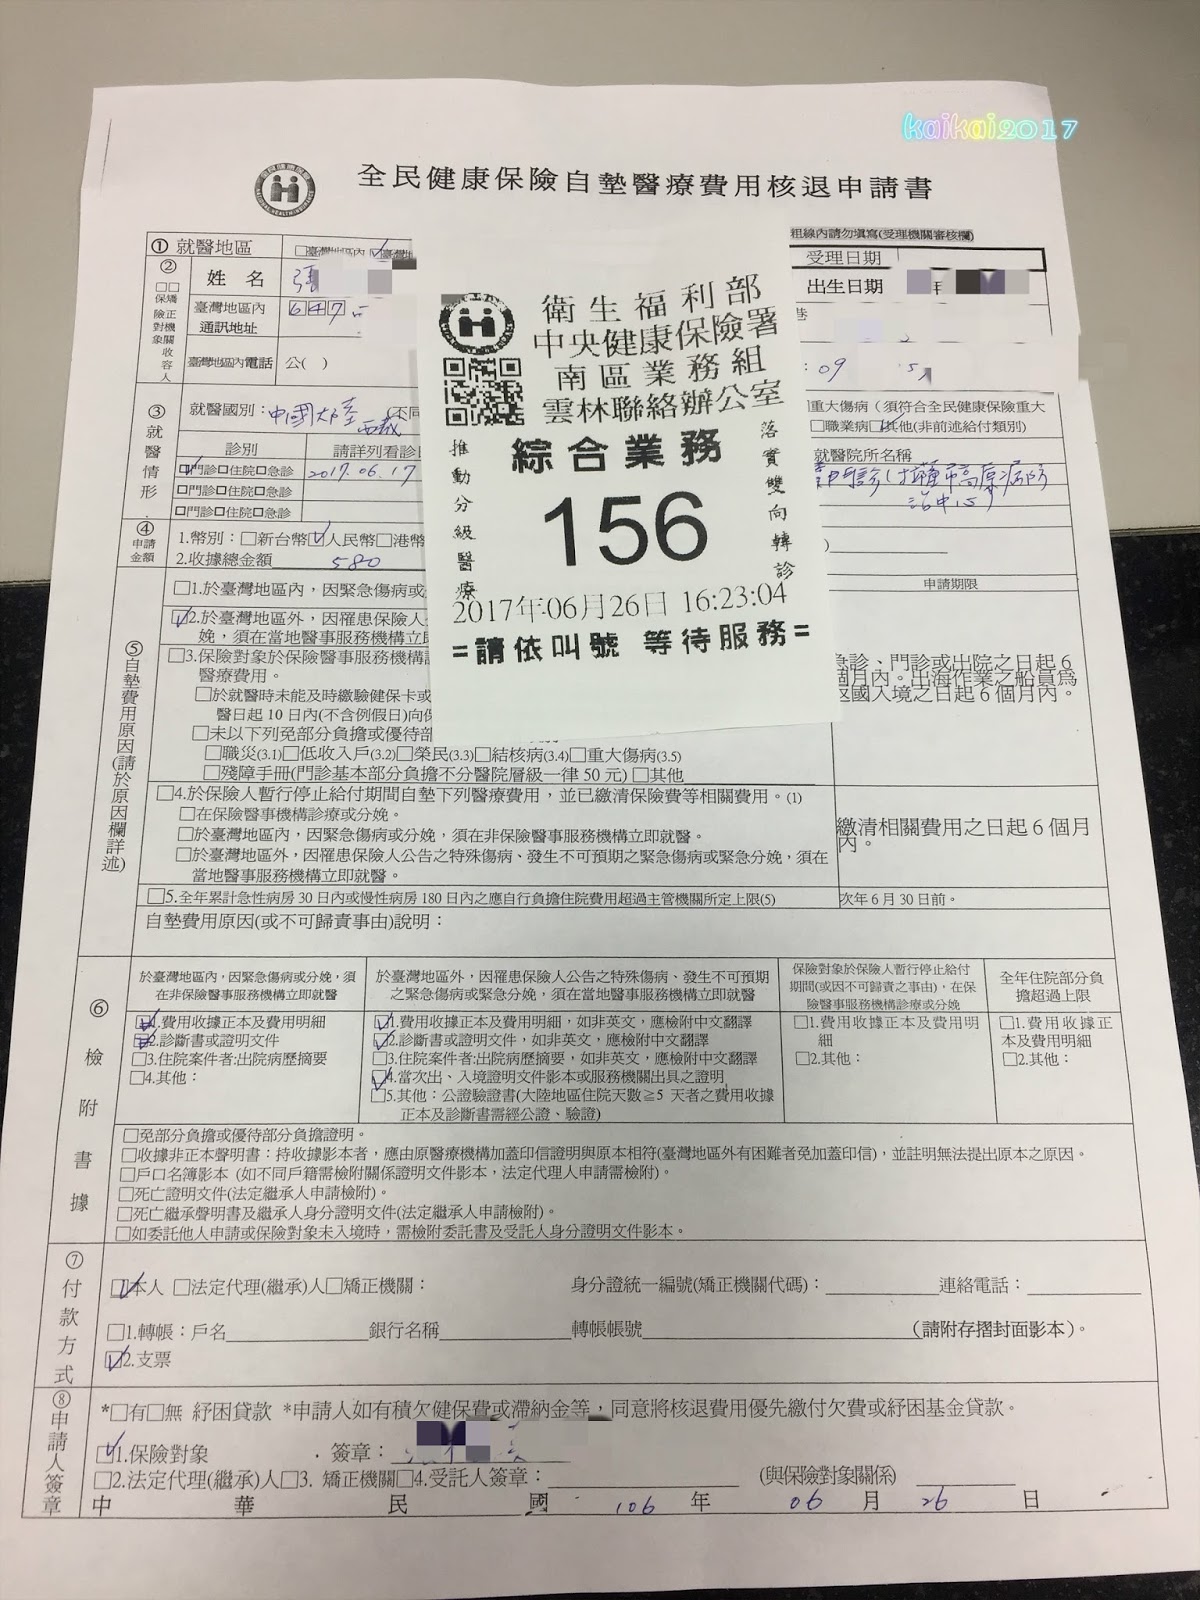 kaikai2017
全民健康保險自墊醫療費用核退申請書
①就醫地區
□臺灣地區內
粗線內請勿填寫(受理機關審核欄)
受理日期
②
□□
保矯
險正
對機
象關
收
容
人
姓名 張
出生日期 年
臺灣地區內
通訊地址
647
巷
臺灣地區內電話
公( )
: 09
衛生福利部
中央健康保險署
南區業務組
雲林聯絡辦公室
綜合業務
156
推動分級醫療
落實雙向轉診
2017年06月26日 16:23:04
=請依叫號 等待服務=
③就醫情形
就醫國別：中國大陸
西藏
(不同
□重大傷病（須符合全民健康保險重大
□職業病□其他(非前述給付類別)
診別
請詳列看診
就醫院所名稱
□門診□住院□急診 2017.06.17
高原病防
治中心)
□門診□住院□急診
□門診□住院□急診
④申請金額
1.幣別：□新台幣□人民幣□港幣
2.收據總金額 580
申請期限
⑤自墊費用原因(請於原因欄詳述)
□1.於臺灣地區內，因緊急傷病或分
□2.於臺灣地區外，因罹患保險人
娩，須在當地醫事服務機構立即
□3.保險對象於保險醫事服務機構
醫療費用。
□於就醫時未能及時繳驗健保卡或
醫日起 10 日內(不含例假日)向保
□未以下列免部分負擔或優待部
□職災(3.1)□低收入戶(3.2)□榮民(3.3)□結核病(3.4)□重大傷病(3.5)
□殘障手冊(門診基本部分負擔不分醫院層級一律 50 元) □其他
急診、門診或出院之日起 6
個月內。出海作業之船員為
返國入境之日起 6 個月內。
□4.於保險人暫行停止給付期間自墊下列醫療費用，並已繳清保險費等相關費用。(1)
□在保險醫事機構診療或分娩。
□於臺灣地區內，因緊急傷病或分娩，須在非保險醫事服務機構立即就醫。
□於臺灣地區外，因罹患保險人公告之特殊傷病、發生不可預期之緊急傷病或緊急分娩，須在
當地醫事服務機構立即就醫。
繳清相關費用之日起 6 個月
內。
□5.全年累計急性病房 30 日內或慢性病房 180 日內之應自行負擔住院費用超過主管機關所定上限(5)
次年 6 月 30 日前。
自墊費用原因(或不可歸責事由)說明：
⑥檢附書據
於臺灣地區內，因緊急傷病或分娩，須
在非保險醫事服務機構立即就醫
於臺灣地區外，因罹患保險人公告之特殊傷病、發生不可預期
之緊急傷病或緊急分娩，須在當地醫事服務機構立即就醫
保險對象於保險人暫行停止給付
期間(或因不可歸責之事由)，在保
險醫事服務機構診療或分娩
全年住院部分負
擔超過上限
□1.費用收據正本及費用明細
□2.診斷書或證明文件
□3.住院案件者:出院病歷摘要
□4.其他：
□1.費用收據正本及費用明細，如非英文，應檢附中文翻譯
□2.診斷書或證明文件，如非英文，應檢附中文翻譯
□3.住院案件者:出院病歷摘要，如非英文，應檢附中文翻譯
□4.當次出、入境證明文件影本或服務機關出具之證明
□5.其他：公證驗證書(大陸地區住院天數≧5 天者之費用收據
正本及診斷書需經公證、驗證)
□1.費用收據正本及費用明
細
□2.其他：
□1.費用收據正
本及費用明細
□2.其他：
□免部分負擔或優待部分負擔證明。
□收據非正本聲明書：持收據影本者，應由原醫療機構加蓋印信證明與原本相符(臺灣地區外有困難者免加蓋印信)，並註明無法提出原本之原因。
□戶口名簿影本 (如不同戶籍需檢附關係證明文件影本，法定代理人申請需檢附)。
□死亡證明文件(法定繼承人申請檢附)。
□死亡繼承聲明書及繼承人身分證明文件(法定繼承人申請檢附)。
□如委託他人申請或保險對象未入境時，需檢附委託書及受託人身分證明文件影本。
⑦付款方式
□本人 □法定代理(繼承)人□矯正機關： 身分證統一編號(矯正機關代碼)： 連絡電話：
□1.轉帳：戶名 銀行名稱 轉帳帳號 (請附存摺封面影本)。
□2.支票
⑧申請人簽章
*□有□無 紓困貸款 *申請人如有積欠健保費或滯納金等，同意將核退費用優先繳付欠費或紓困基金貸款。
□1.保險對象 . 簽章：
□2.法定代理(繼承)人□3. 矯正機關□4.受託人簽章： (與保險對象關係)
中 華 民 國 106 年 06 月 26 日